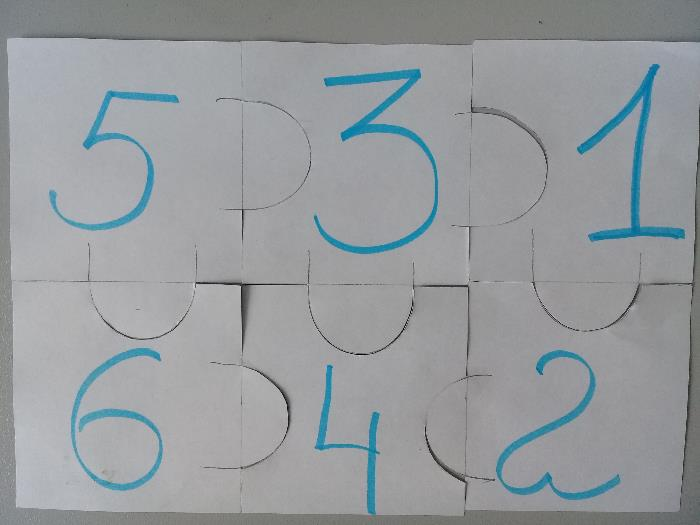 5 3 1
6 4 2